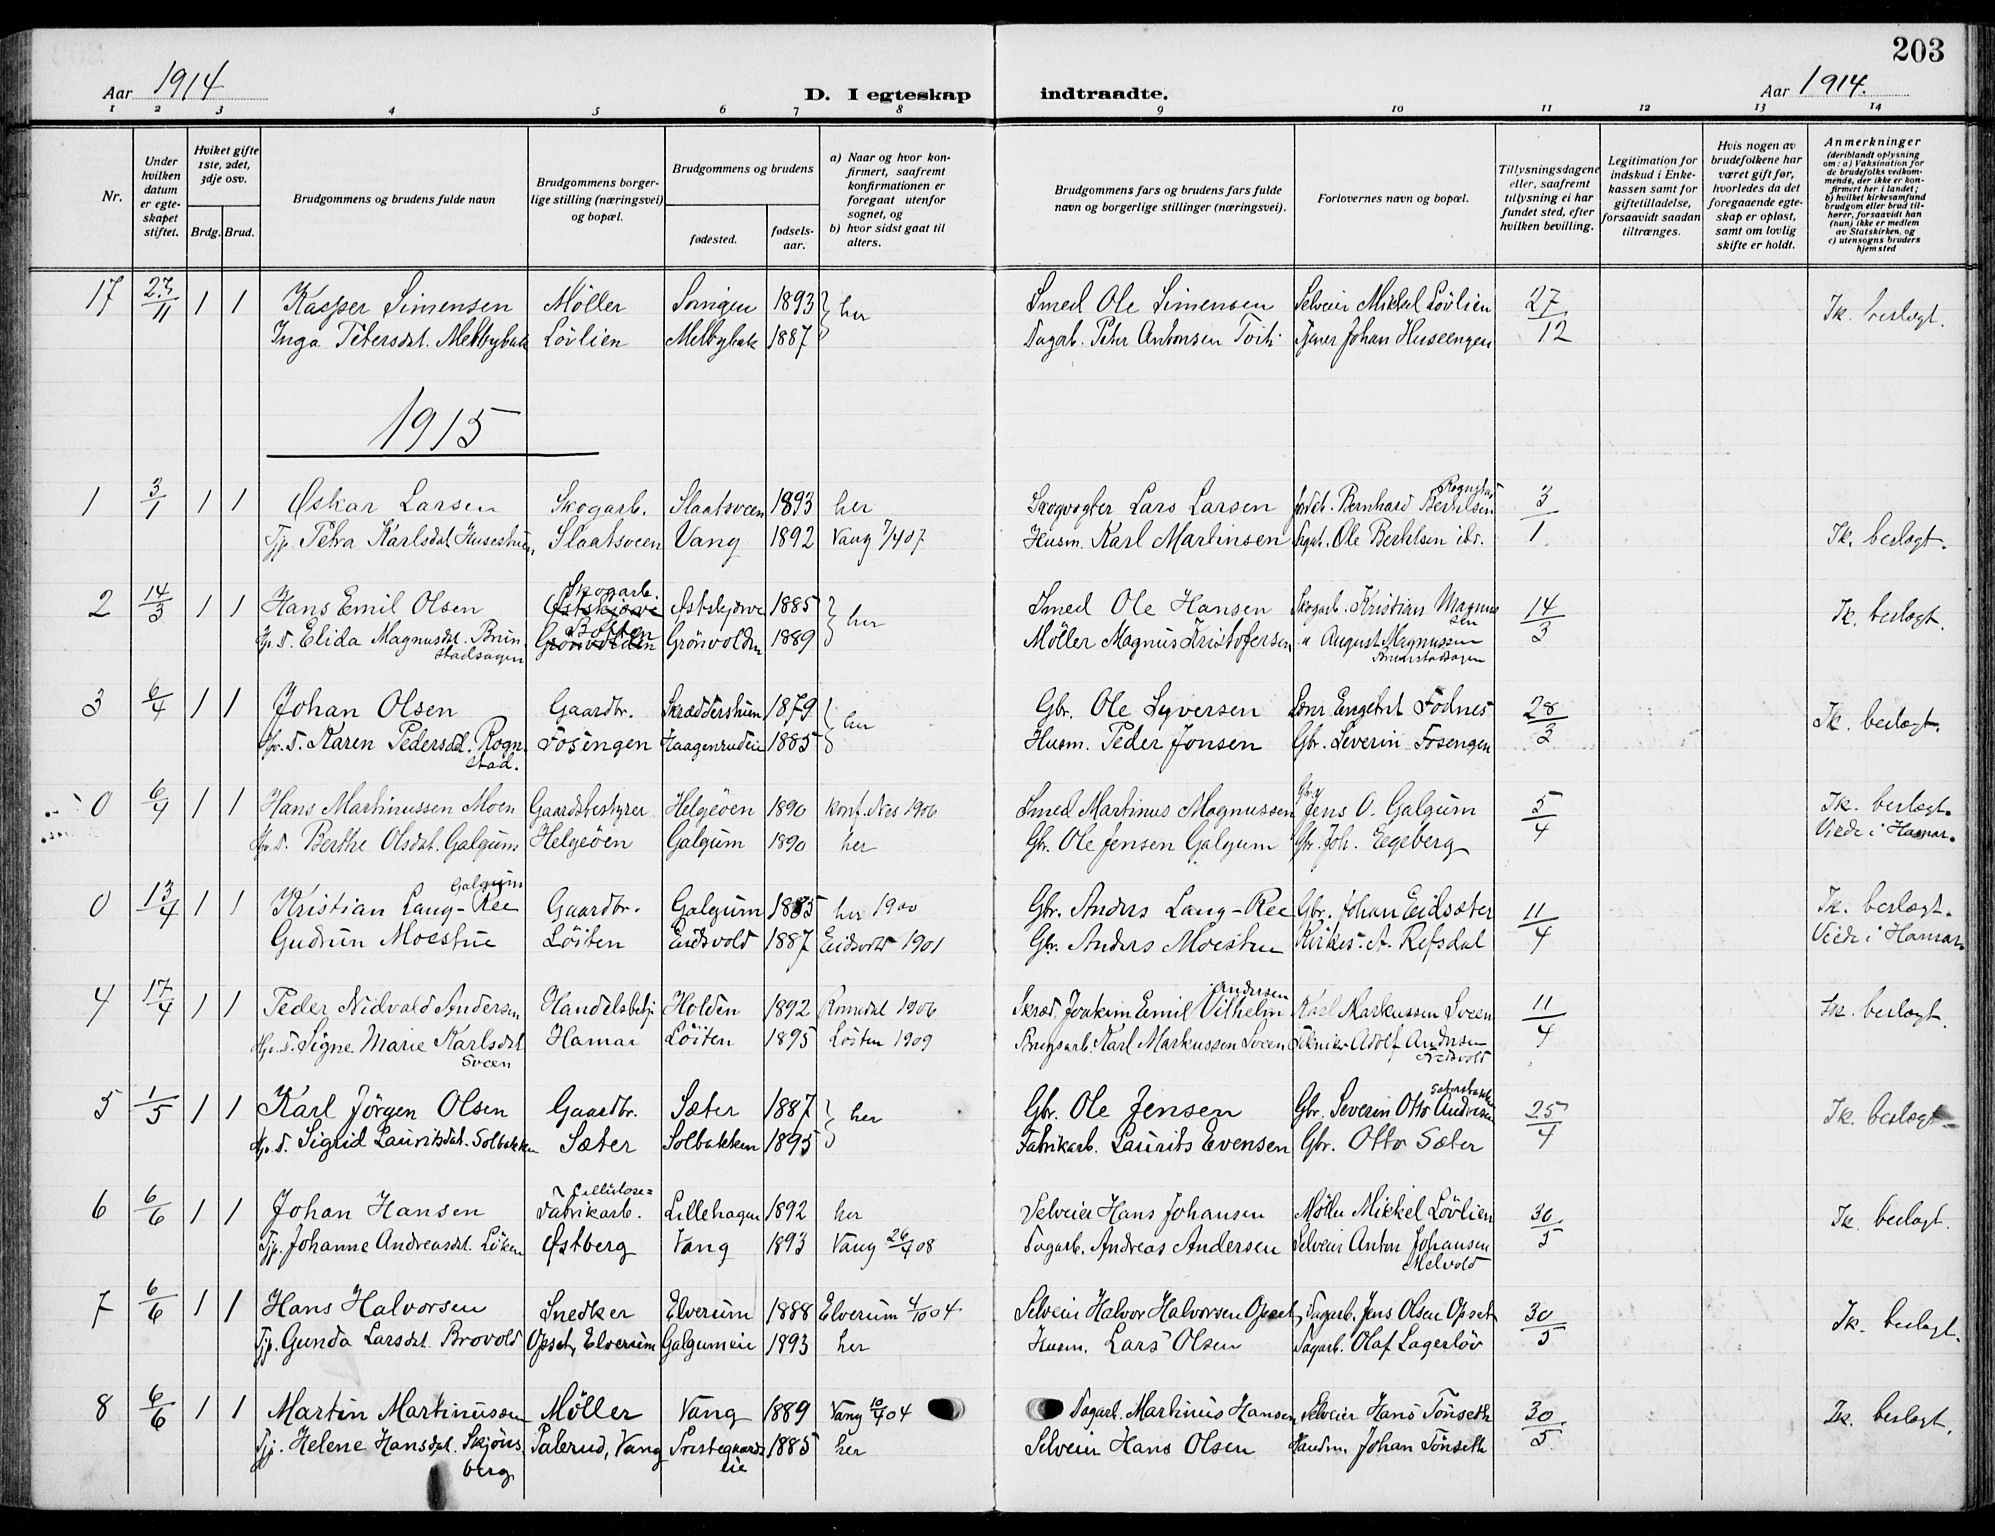 203
Aar 1914
D. I egteskap indtraadte.
Aar 1914.
1 2 3 4 5 6 7 8 9 10 11 12 13 14
Nr.
Under hvilken datum er egteskapet stiftet.
Hviket gifte 1ste, 2det, 3dje osv.
Brdg. Brud.
Brudgommens og brudens fulde navn
Brudgommens borgerlige stilling (næringsvei) og bopæl.
Brudgommens og brudens
fødested.
fødselsaar.
a) Naar og hvor konfirmert, saafremt konfirmationen er foregaat utenfor sognet, og
b) hvor sidst gaat til alters.
Brudgommens fars og brudens fars fulde navn og borgerlige stillinger (næringsvei).
Forlovernes navn og bopæl.
Tillysningsdagene eller, saafremt tillysning ei har fundet sted, efter hvilken bevilling.
Legitimation for indskud i Enkekassen samt for giftetilladelse, forsaavidt saadan tiltrænges.
Hvis nogen av brudefolkene har været gift før, hvorledes da det foregaaende egteskap er opløst, samt om lovlig skifte er holdt.
Anmerkninger (deriblandt oplysning om: a) Vaksination for de brudefolks vedkommende, der ikke er konfirmert her i landet; b) hvilket kirkesamfund brudgom eller brud tilhører, forsaavidt han (hun) ikke er medlem av Statskirken, og c) utensogns bruders hjemsted
17 27/11 1 1 Kasper Simensen Møller 1893 her Smed Ole Simensen Selveier Mikkel Lövlien 27/12 Ik. beslegt.
Inga Petersdat. Melbybak Lövlien Melbybak 1887 Dagarb. Peter Antonsen Johan Huseengen
1915
1 3/1 1 1 Oskar Larsen Skogarb. Slaatsveen 1893 her Skogvogter Lars Larsen Bernhard Berthelsen Rognstad 3/1
Tjp. Petra Karlsdat. Slaatsveen Vang 1892 Vang 7/4 07 Husm. Karl Martinsen Ole Berthelsen ibr. Ik. beslegt.
2 14/3 1 1 Hans Emil Olsen Skogarb. Østskjørve 1885 her Smed Ole Hansen Skogarb. Kristian Magnussen 14/3 Ik. beslegt.
Elida Magnusdat. Brunstadsagen Grönvolden Grönvolden 1889 Møller Magnus Kristofersen " August Magnussen
3 6/4 1 1 Johan Olsen Gaardbr. Skræddershuen 1879 her Gbr. Ole Syversen Engebret Fodnes 28/3 Ik. beslegt.
Karen Pedersdat. Rognstad. Fosengen Haagenrudeie 1885 Husm. Peder Jonsen Gbr. Severin Fosengen
0 6/4 1 1 Hans Martinussen Moen Gaardsbestyrer Helgeöen 1890 konf. Nes 1906 Smed Martinus Magnussen Gbr. Jens O. Galgum 5/4 Ik. beslegt.
Berthe Olsdat. Galgum Helgeöen Galgum 1890 her Gbr. Ole Jensen Galgum Gbr. Joh. Egeberg Viede i Hamar.
0 13/4 1 1 Kristian Lang-Ree Galgum Gaardbr. Galgum 1885 her 1900 Gbr. Anders Lang-Ree Gbr. Johan Eidsæter 11/4 Ik. beslegt.
Gudrun Moestue Löiten Eidsvold 1887 Eidsvold 1901 Gbr. Anders Moestue A. Refsdal Viede i Hamar.
4 17/4 1 1 Peder Nidvald Andersen Handelsbetj. Holden 1892 Romedal 1906 Skræd. Joakim Emil Vilhelm Andersen Karl Markussen Sveen 11/4 Ik. beslegt.
Signe Marie Karlsdat. Sveen Hamar Löiten 1895 Löiten 1909 Brugsarb. Karl Markussen Sveen Tekniker Adolf Andersen
5 1/5 1 1 Karl Jörgen Olsen Gaardbr. Sæter 1887 her Gbr. Ole Jensen Gbr. Severin Otto Andersen 25/4 Ik. beslegt.
Sigrid Lauritsdat. Solbakken Sæter Solbakken 1895 Fabrikarb. Laurits Evensen Gbr. Otto Sæter
6 6/6 1 1 Johan Hansen Cellulose=Fabrikarb. Lillehagen 1892 her Selveier Hans Johansen Møller Mikkel Lövlien 30/5 Ik. beslegt.
Tjp. Johanne Andreasdat. Löken Østberg Vang 1893 Vang 26/4 08 Dagarb. Andreas Andersen Selveier Anton Johansen Melvold
7 6/6 1 1 Hans Halvorsen Snedker Elverum 1888 Elverum 4/10 04 Selveier Halvor Halvorsen Opset Dagarb. Jens Olsen Opset 30/5 Ik. beslegt.
Tjp. Gunda Larsdat. Brovold Opset, Elverum Galgumeie 1893 her Husm. Lars Olsen Dagarb. Olaf Lagerlöv
8 6/6 1 1 Martin Martinussen Møller Vang 1889 Vang 10/4 04 Dagarb. Martinus Hansen Selveier Hans Tönseth 30/5 Ik. beslegt.
Tjp. Helene Hansdat. Skjönsberg Palerud, Vang Prestegaardseie 1885 her Selveier Hans Olsen Johan Tönseth